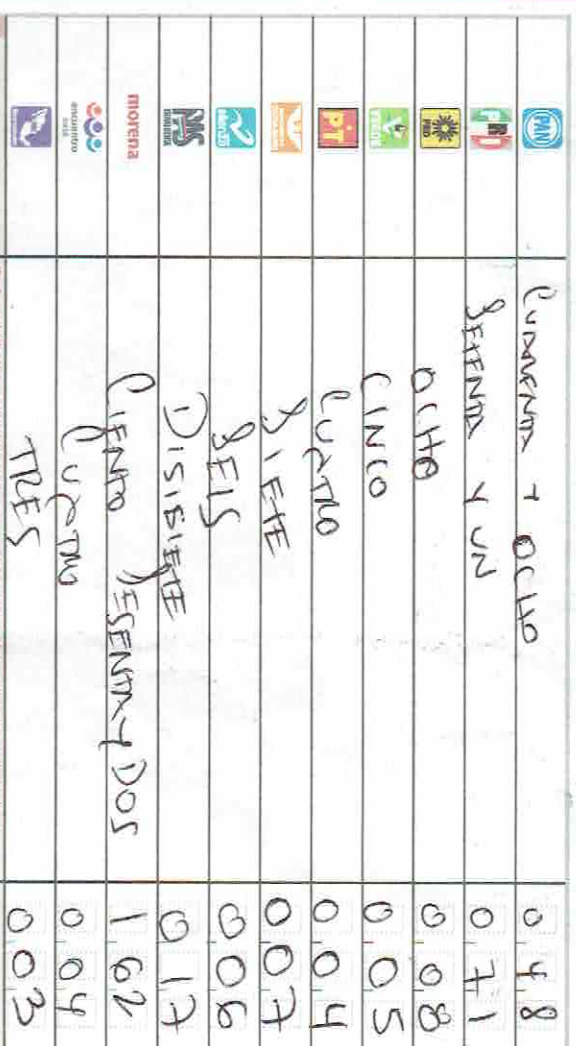 PAN CUARENTA Y OCHO 048
PRI SETENTA Y UN 071
PRD OCHO 008
VERDE CINCO 005
PT CUATRO 004
SIETE 007
SEIS 006
MAS DISISIETE 017
morena CIENTO SESENTA Y DOS 162
encuentro social CUATRO 004
TRES 003